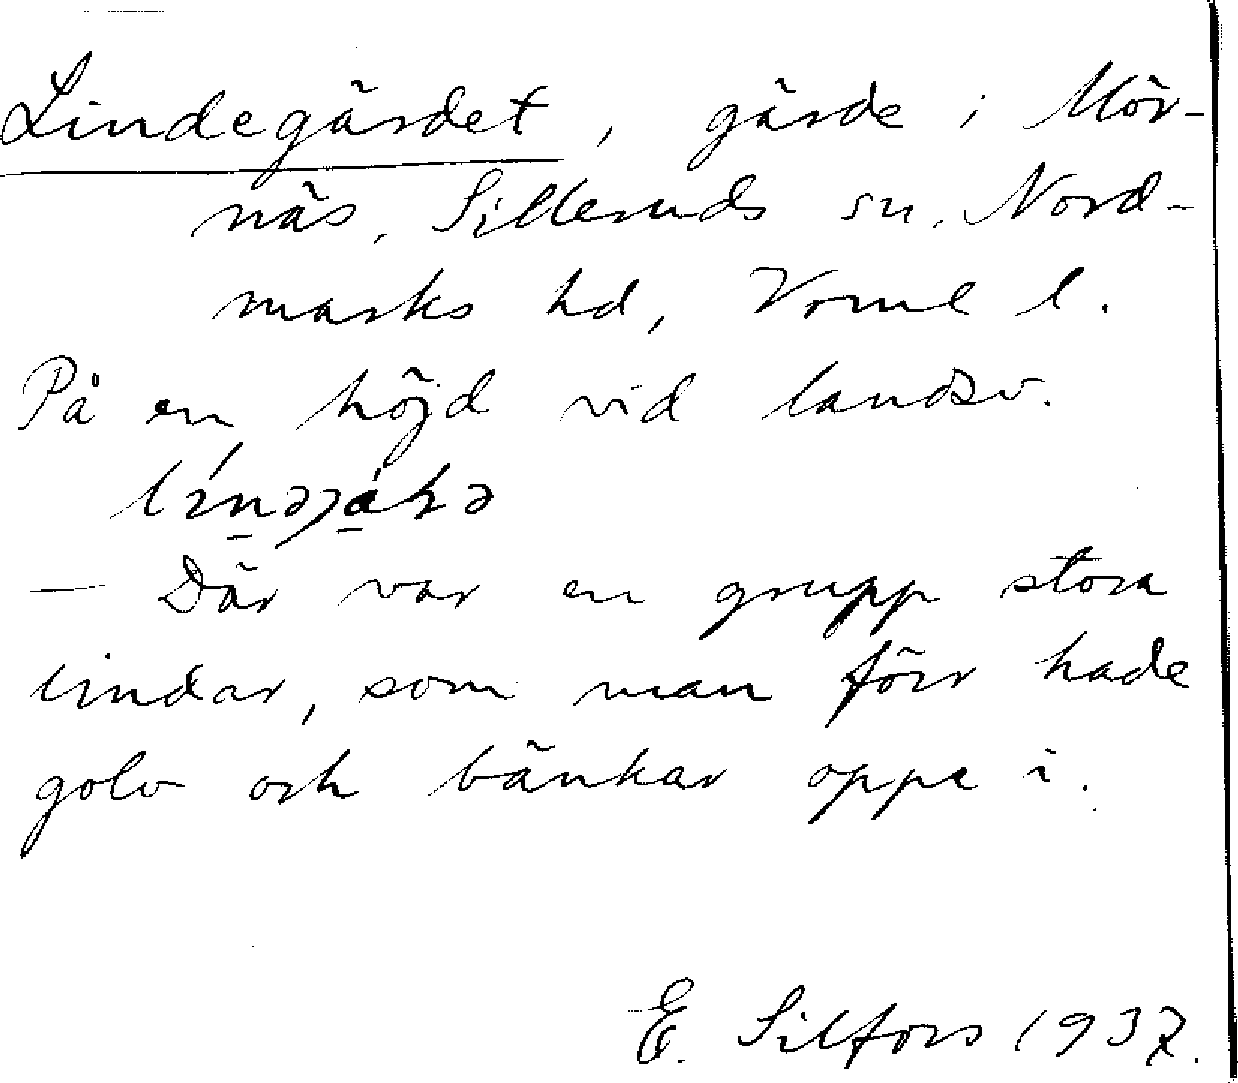 Lindegärdet, gärde i Mör-
näs, Silleruds sn, Nord-
marks hd, Vrml l.
På en höjd vid landsv.
— Där var en grupp stora
lindar, som man förr hade
golv och bänkar oppe i.
E. Silfors 1937.